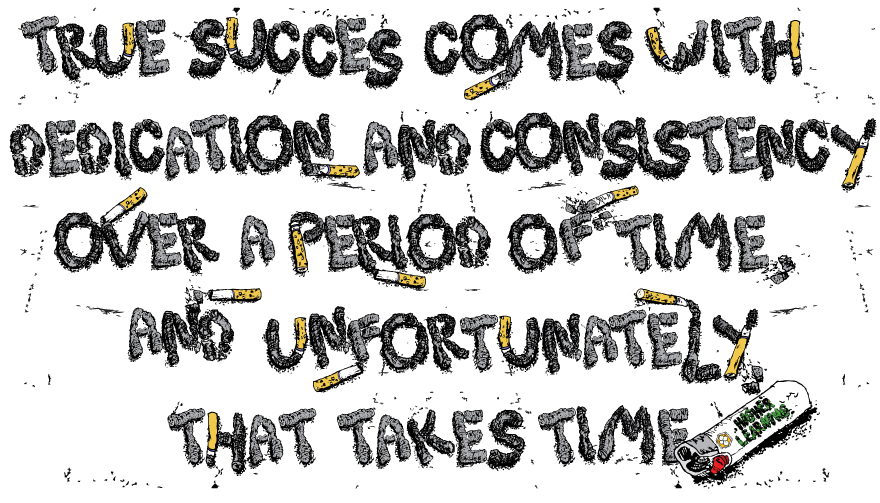 TRUE SUCCES COMES WITH
DEDICATION AND CONSISTENCY
OVER A PERIOD OF TIME
AND UNFORTUNATELY
THAT TAKES TIME
HIGHER
LEARNING